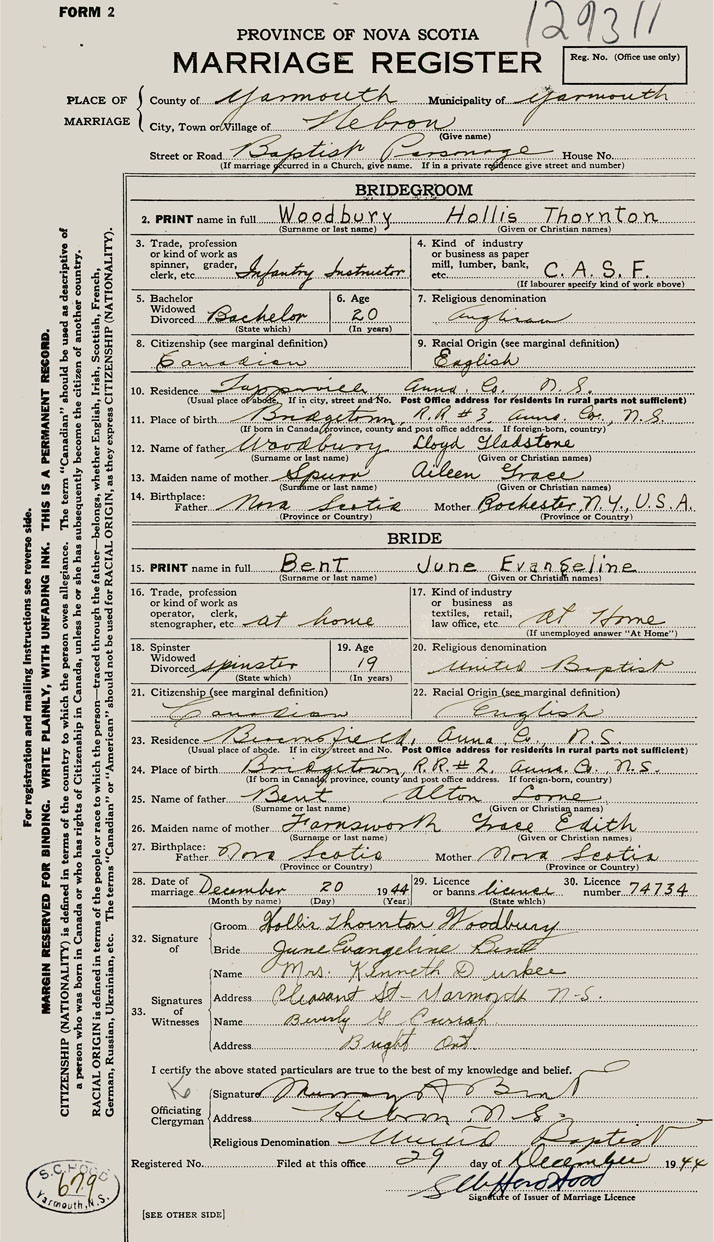 FORM 2
129311
PROVINCE OF NOVA SCOTIA
MARRIAGE REGISTER
Reg. No. (Office use only)
PLACE OF MARRIAGE
County of Yarmouth Municipality of Yarmouth
City, Town or Village of Hebron
(Give name)
Street or Road Baptist Parsonage House No.
(If marriage occurred in a Church, give name. If in a private residence give street and number)
BRIDEGROOM
2. PRINT name in full Woodbury Hollis Thornton
(Surname or last name) (Given or Christian names)
3. Trade, profession or kind of work as spinner, grader, clerk, etc. Infantry Instructor
4. Kind of industry or business as paper mill, lumber, bank, etc. C. A. S. F.
(If labourer specify kind of work above)
5. Bachelor Widowed Divorced Bachelor
(State which)
6. Age 20
(In years)
7. Religious denomination Anglican
8. Citizenship (see marginal definition) Canadian
9. Racial Origin (see marginal definition) English
10. Residence Anna. Co. N. S.
(Usual place of abode. If in city, street and No. Post Office address for residents in rural parts not sufficient)
11. Place of birth Bridgetown, R.R. #3, Anna. Co., N.S.
(If born in Canada, province, county and post office address. If foreign-born, country)
12. Name of father Woodbury Lloyd Gladstone
(Surname or last name) (Given or Christian names)
13. Maiden name of mother Spurr Aileen Grace
(Surname or last name) (Given or Christian names)
14. Birthplace: Father Nova Scotia Mother Rochester, N.Y., U.S.A.
(Province or Country) (Province or Country)
BRIDE
15. PRINT name in full Bent June Evangeline
(Surname or last name) (Given or Christian names)
16. Trade, profession or kind of work as operator, clerk, stenographer, etc at home
17. Kind of industry or business as textiles, retail, law office, etc. At Home
(If unemployed answer "At Home")
18. Spinster Widowed Divorced spinster
(State which)
19. Age 19
(In years)
20. Religious denomination United Baptist
21. Citizenship (see marginal definition) Canadian
22. Racial Origin (see marginal definition) English
23. Residence Anna Co., N.S.
(Usual place of abode. If in city, street and No. Post Office address for residents in rural parts not sufficient)
24. Place of birth Bridgetown, R.R. #2, Anna. Co., N.S.
(If born in Canada, province, county and post office address. If foreign-born, country)
25. Name of father Bent Alton Lorne
(Surname or last name) (Given or Christian names)
26. Maiden name of mother Farnsworth Grace Edith
(Surname or last name) (Given or Christian names)
27. Birthplace: Father Nova Scotia Mother Nova Scotia
(Province or Country) (Province or Country)
28. Date of marriage December 20 1944
(Month by name) (Day) (Year)
29. Licence or banns licence
(State which)
30. Licence number 74734
32. Signature of
Groom Hollis Thornton Woodbury
Bride June Evangeline Bent
33. Signatures of Witnesses
Name Mrs. Kenneth Durkee
Address Pleasant St - Yarmouth N-S.
Name Beverly G Currah
Address Bright Ont
I certify the above stated particulars are true to the best of my knowledge and belief.
Officiating Clergyman
Signature Murray A Brent
Address Hebron N S.
Religious Denomination United Baptist
Registered No. Filed at this office 29 day of December 1944
S Clifford Hood
Signature of Issuer of Marriage Licence
[SEE OTHER SIDE]
S.C. HOOD
679
Yarmouth, N.S.
For registration and mailing instructions see reverse side.
MARGIN RESERVED FOR BINDING. WRITE PLAINLY, WITH UNFADING INK. THIS IS A PERMANENT RECORD.
CITIZENSHIP (NATIONALITY) is defined in terms of the country to which the person owes allegiance. The term "Canadian" should be used as descriptive of
a person who was born in Canada or who has rights of Citizenship in Canada, unless he or she has subsequently become the citizen of another country.
RACIAL ORIGIN is defined in terms of the people or race to which the person—traced through the father—belongs, whether English, Irish, Scottish, French,
German, Russian, Ukrainian, etc. The terms "Canadian" or "American" should not be used for RACIAL ORIGIN, as they express CITIZENSHIP (NATIONALITY).